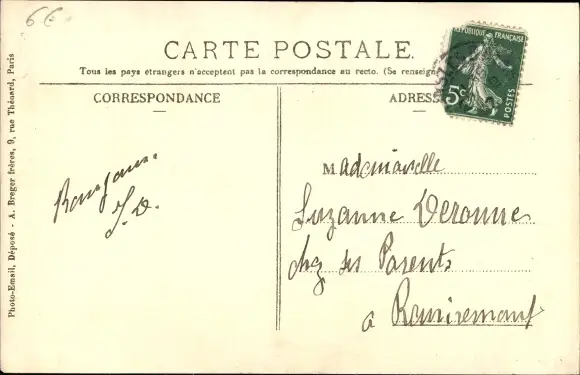 6€
CARTE POSTALE.
Tous les pays étrangers n'acceptent pas la correspondance au recto. (Se renseign
CORRESPONDANCE
ADRESS
RÉPUBLIQUE FRANÇAISE
5c
POSTES
Photo-Email, Déposé - A. Breger frères, 9, rue Thénard, Paris
J. D.
Mademoiselle
Suzanne Deronne
chez ses Parents
à Remiremont